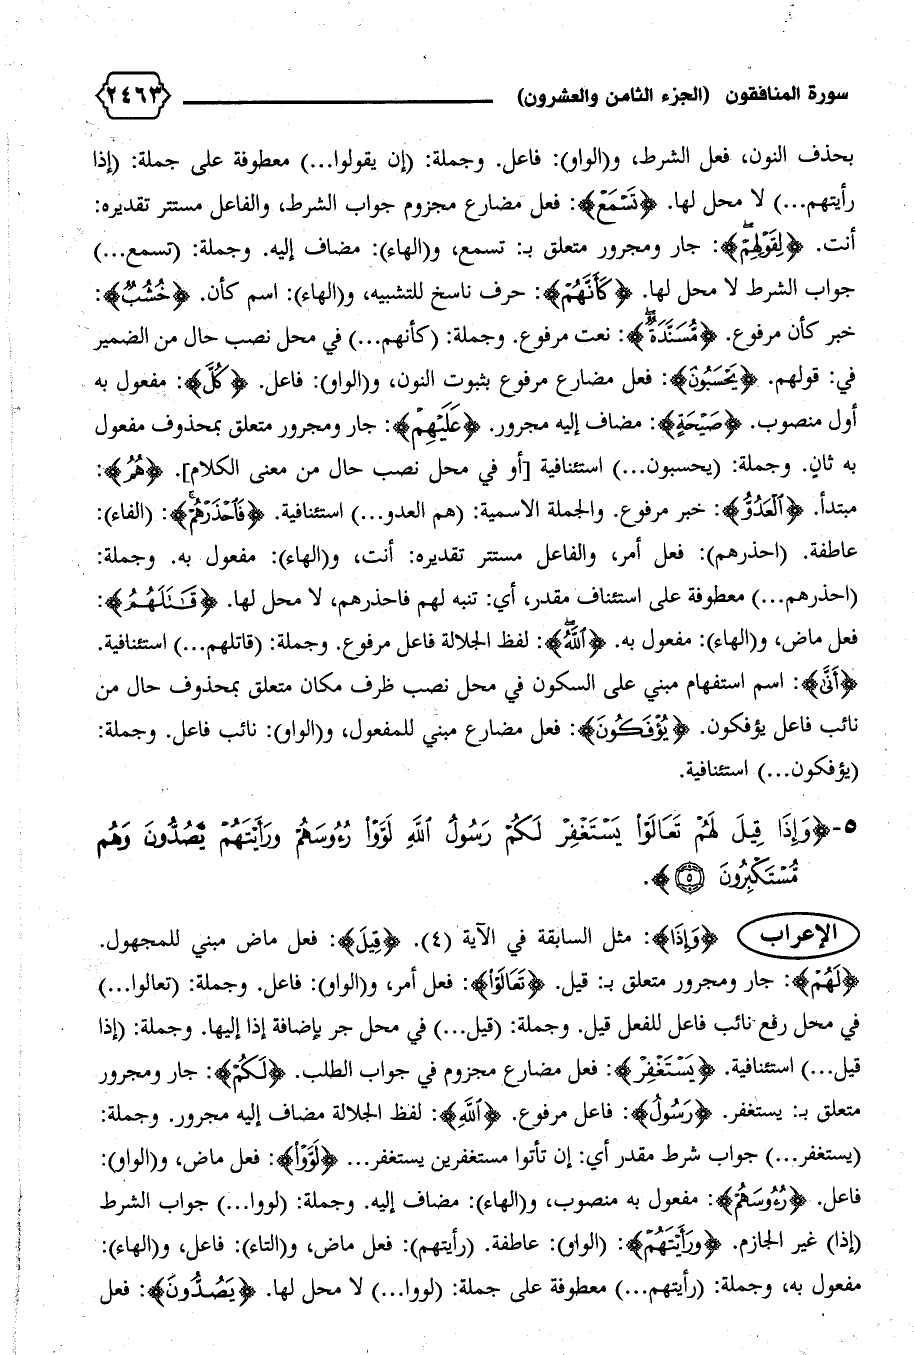 سورة المنافقون (الجزء الثامن والعشرون) ٢٤٦٣
بحذف النون، فعل الشرط، و(الواو): فاعل. وجملة: (إن يقولوا...) معطوفة على جملة: (إذا
رأيتهم...) لا محل لها. ﴿تَسْمَعْ﴾: فعل مضارع مجزوم جواب الشرط، والفاعل مستتر تقديره:
أنت. ﴿لِقَوْلِهِمْ﴾: جار ومجرور متعلق بـ: تسمع، و(الهاء): مضاف إليه. وجملة: (تسمع...)
جواب الشرط لا محل لها. ﴿كَأَنَّهُمْ﴾: حرف ناسخ للتشبيه، و(الهاء): اسم كأن. ﴿خُشُبٌ﴾:
خبر كأن مرفوع. ﴿مُّسَنَّدَةٌ﴾: نعت مرفوع. وجملة: (كأنهم...) في محل نصب حال من الضمير
في: قولهم. ﴿يَحْسَبُونَ﴾: فعل مضارع مرفوع بثبوت النون، و(الواو): فاعل. ﴿كُلَّ﴾: مفعول به
أول منصوب. ﴿صَيْحَةٍ﴾: مضاف إليه مجرور. ﴿عَلَيْهِمْ﴾: جار ومجرور متعلق بمحذوف مفعول
به ثانٍ. وجملة: (يحسبون...) استئنافية [أو في محل نصب حال من معنى الكلام]. ﴿هُمُ﴾:
مبتدأ. ﴿ٱلْعَدُوُّ﴾: خبر مرفوع. والجملة الاسمية: (هم العدو...) استئنافية. ﴿فَٱحْذَرْهُمْ﴾: (الفاء):
عاطفة. (احذرهم): فعل أمر، والفاعل مستتر تقديره: أنت، و(الهاء): مفعول به. وجملة:
(احذرهم...) معطوفة على استئناف مقدر، أي: تنبه لهم فاحذرهم، لا محل لها. ﴿قَٰتَلَهُمُ﴾:
فعل ماض، و(الهاء): مفعول به. ﴿ٱللَّهُ﴾: لفظ الجلالة فاعل مرفوع. وجملة: (قاتلهم...) استئنافية.
﴿أَنَّىٰ﴾: اسم استفهام مبني على السكون في محل نصب ظرف مكان متعلق بمحذوف حال من
نائب فاعل يؤفكون. ﴿يُؤْفَكُونَ﴾: فعل مضارع مبني للمفعول، و(الواو): نائب فاعل. وجملة:
(يؤفكون...) استئنافية.
٥- ﴿وَإِذَا قِيلَ لَهُمْ تَعَالَوْا۟ يَسْتَغْفِرْ لَكُمْ رَسُولُ ٱللَّهِ لَوَّوْا۟ رُءُوسَهُمْ وَرَأَيْتَهُمْ يَصُدُّونَ وَهُم
مُّسْتَكْبِرُونَ ٥﴾.
الإعراب ﴿وَإِذَا﴾: مثل السابقة في الآية (٤). ﴿قِيلَ﴾: فعل ماض مبني للمجهول.
﴿لَهُمْ﴾: جار ومجرور متعلق بـ: قيل. ﴿تَعَالَوْا۟﴾: فعل أمر، و(الواو): فاعل. وجملة: (تعالوا...)
في محل رفع نائب فاعل للفعل قيل. وجملة: (قيل...) في محل جر بإضافة إذا إليها. وجملة: (إذا
قيل...) استئنافية. ﴿يَسْتَغْفِرْ﴾: فعل مضارع مجزوم في جواب الطلب. ﴿لَكُمْ﴾: جار ومجرور
متعلق بـ: يستغفر. ﴿رَسُولُ﴾: فاعل مرفوع. ﴿ٱللَّهِ﴾: لفظ الجلالة مضاف إليه مجرور. وجملة:
(يستغفر...) جواب شرط مقدر أي: إن تأتوا مستغفرين يستغفر... ﴿لَوَّوْا۟﴾: فعل ماض، و(الواو):
فاعل. ﴿رُءُوسَهُمْ﴾: مفعول به منصوب، و(الهاء): مضاف إليه. وجملة: (لووا...) جواب الشرط
(إذا) غير الجازم. ﴿وَرَأَيْتَهُمْ﴾: (الواو): عاطفة. (رأيتهم): فعل ماض، و(التاء): فاعل، و(الهاء):
مفعول به، وجملة: (رأيتهم...) معطوفة على جملة: (لووا...) لا محل لها. ﴿يَصُدُّونَ﴾: فعل